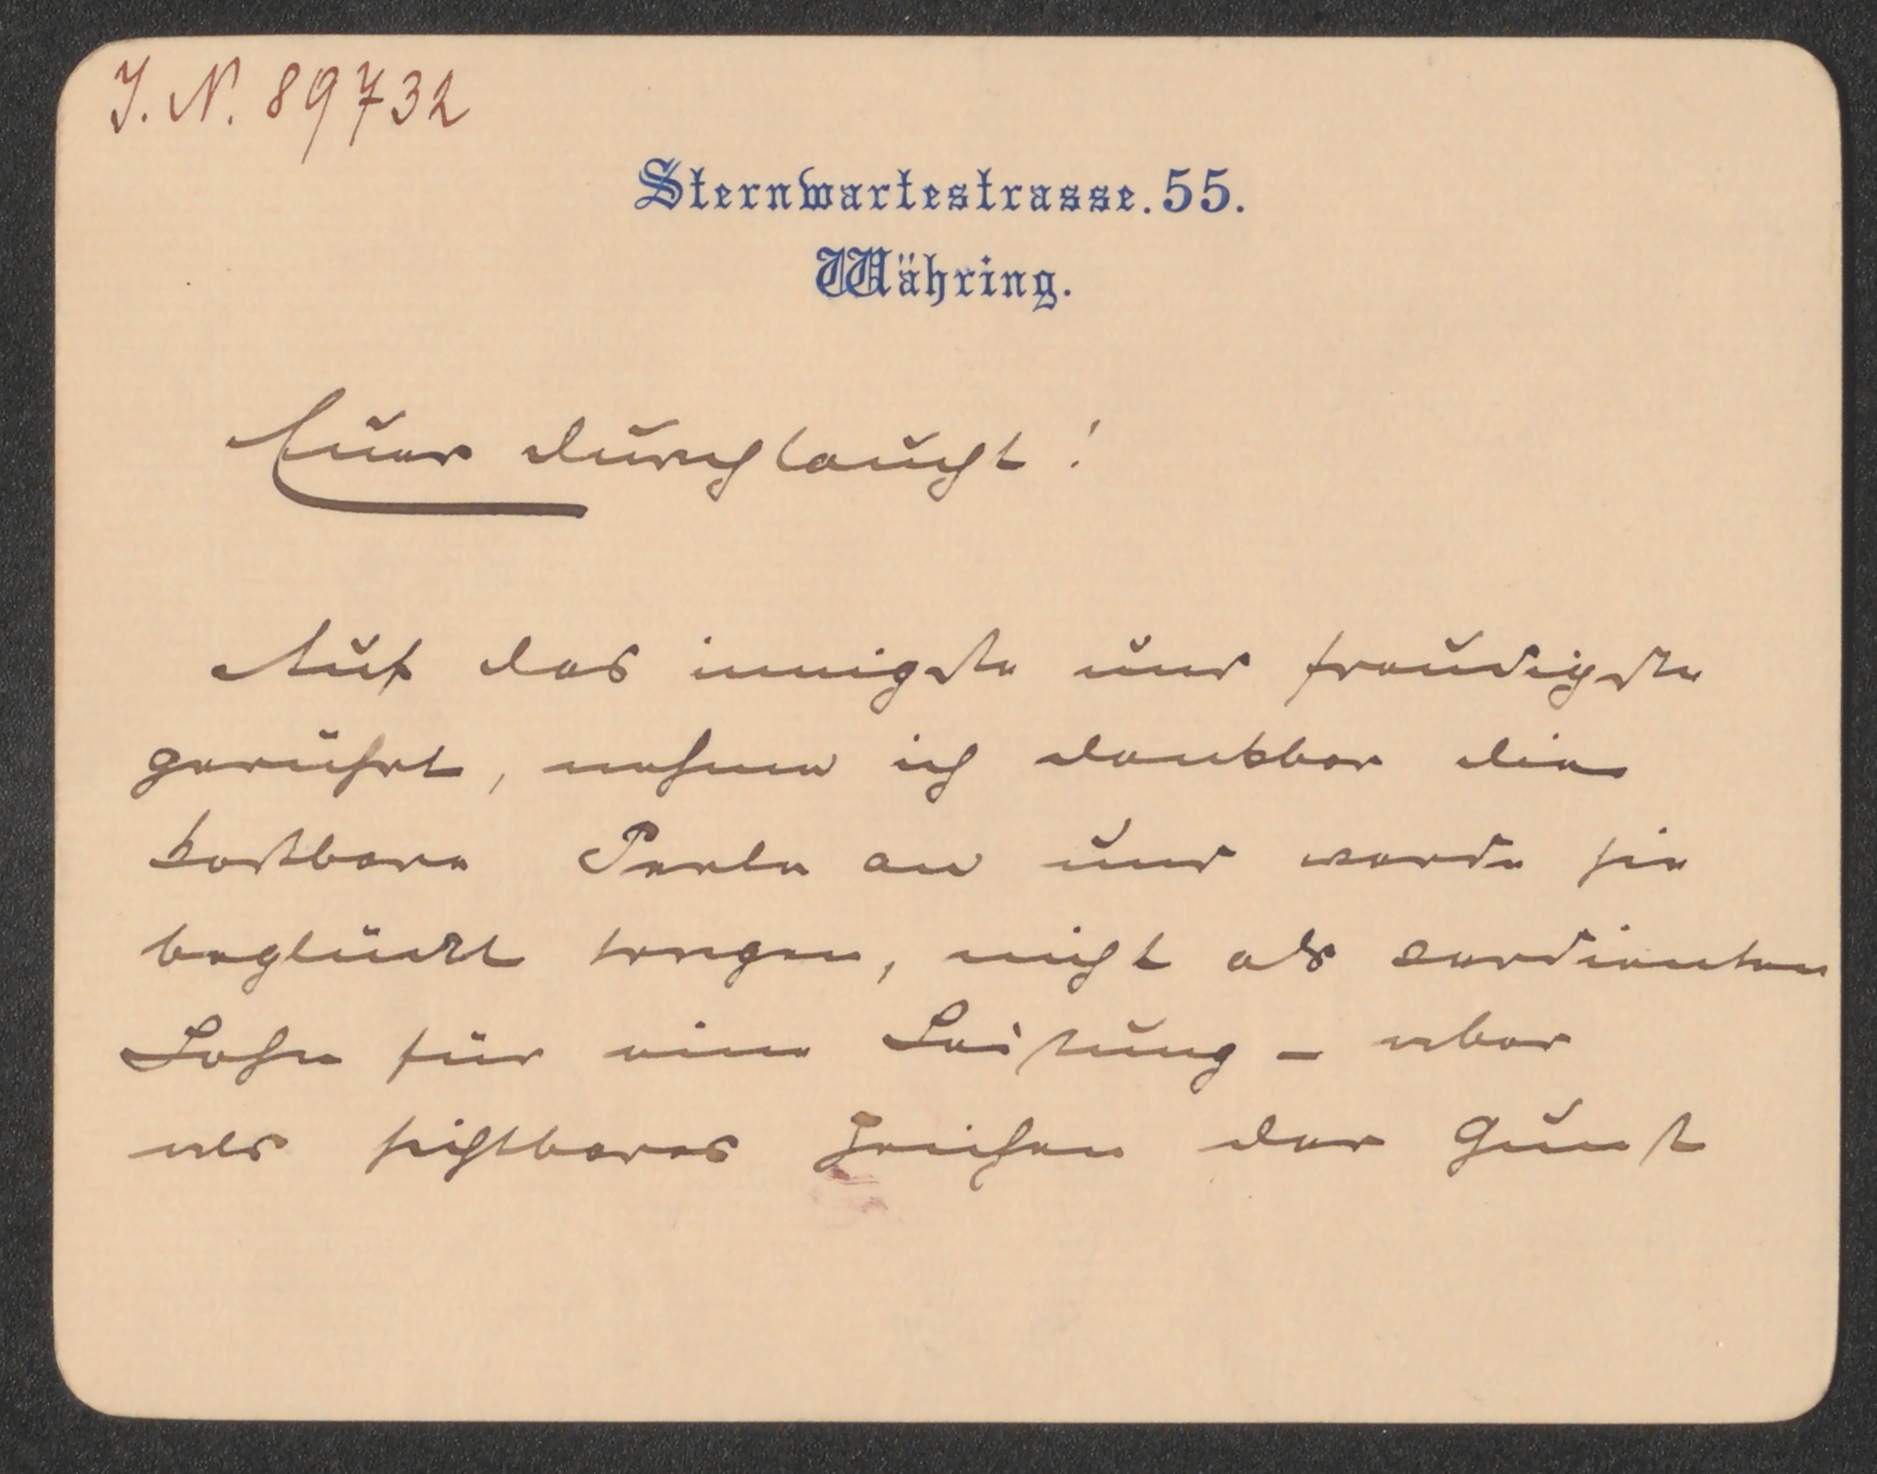 J. N. 89732
Sternwartestrasse. 55.
Währing.
Euer Durchlaucht!
Auf das innigste und freudigste
gerührt, nehme ich dankbar die
kostbare Perle an und werde sie
beglückt tragen, nicht als verdienten
Lohn für eine Leistung – aber
als sichtbares Zeichen der Gunst